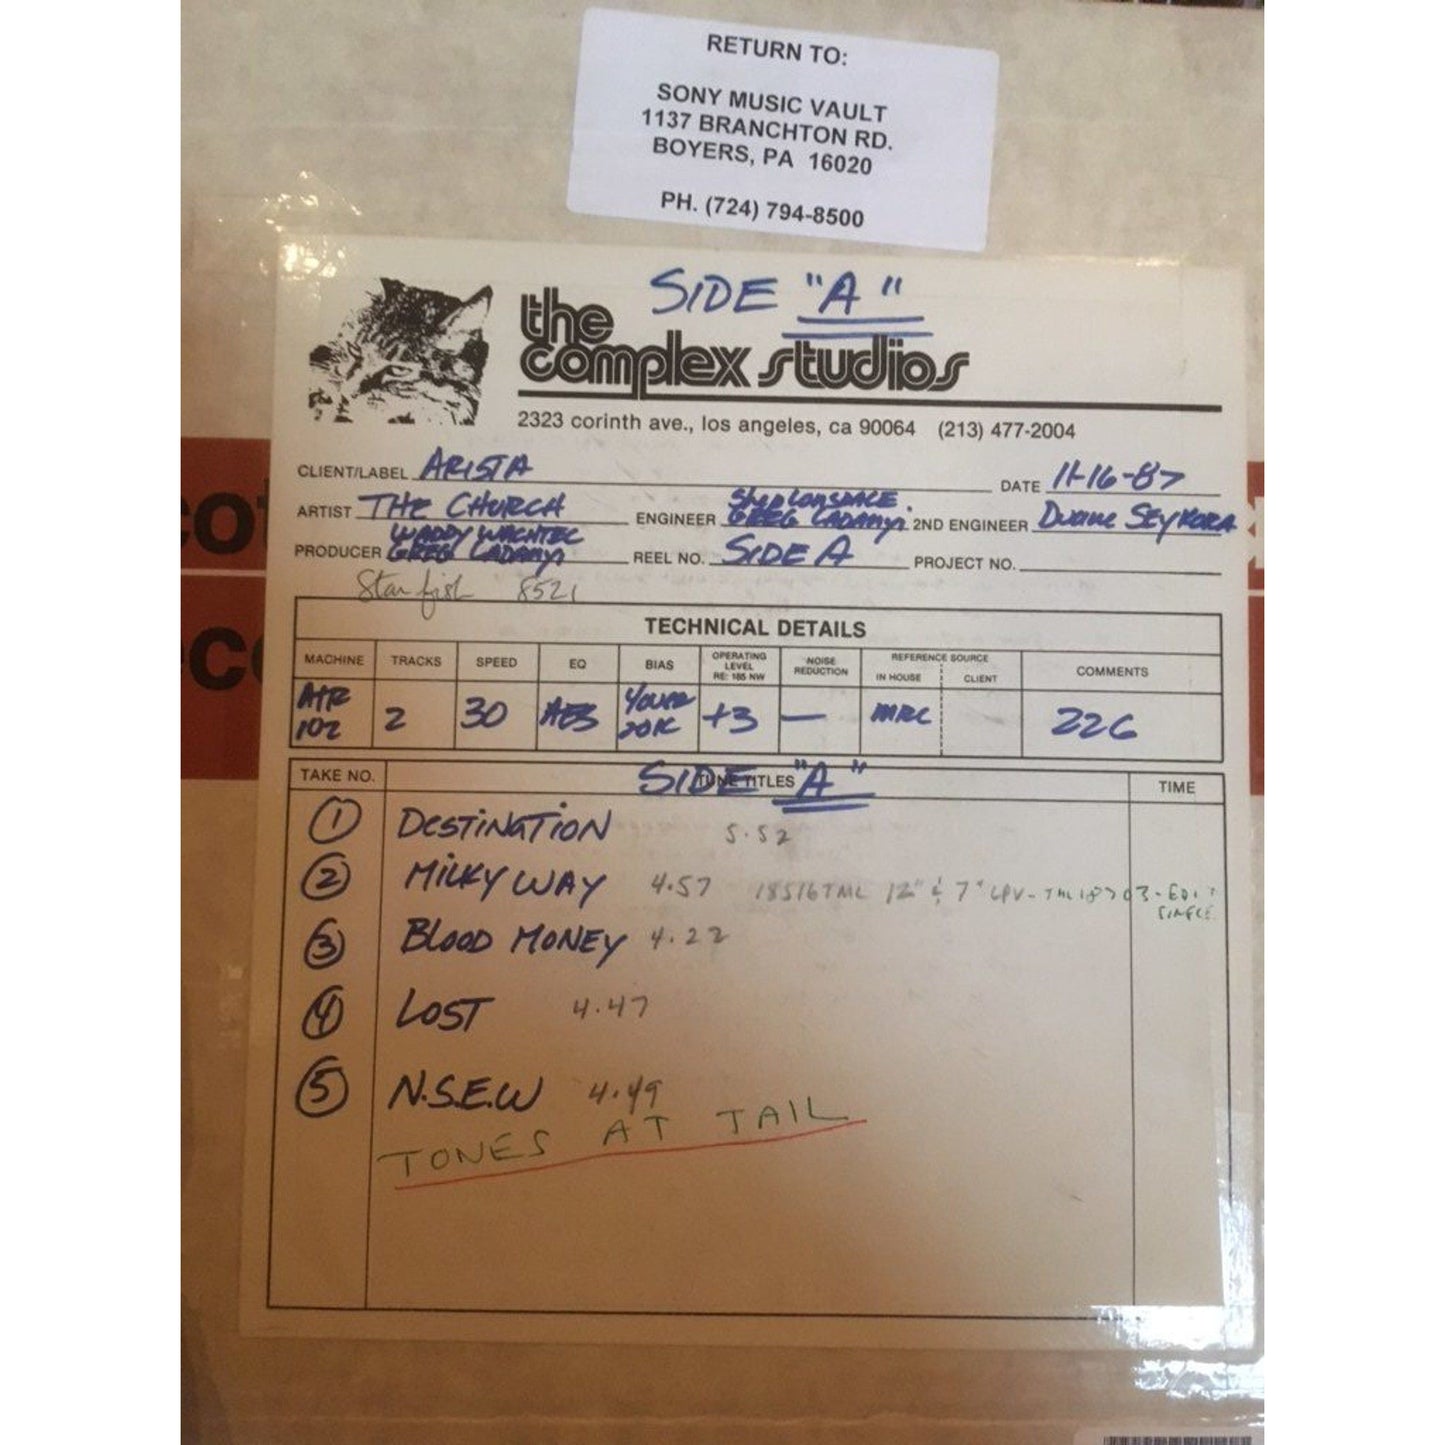 RETURN TO:
SONY MUSIC VAULT
1137 BRANCHTON RD.
BOYERS, PA 16020
PH. (724) 794-8500
SIDE "A"
the
complex studios
2323 corinth ave., los angeles, ca 90064 (213) 477-2004
CLIENT/LABEL ARISTA DATE 11-16-87
ARTIST THE CHURCH ENGINEER Shep LONSDALE. GREG LADANYI 2ND ENGINEER Duane SEYKORA
PRODUCER WADDY WACHTEL GREG LADANYI REEL NO. SIDE A PROJECT NO.
Starfish 8521
TECHNICAL DETAILS
MACHINE TRACKS SPEED EQ BIAS OPERATING LEVEL RE: 185 NW NOISE REDUCTION REFERENCE SOURCE IN HOUSE CLIENT COMMENTS
ATR 102 2 30 AES 20K +3 — MRL 226
TAKE NO. TUNE TITLES SIDE "A" TIME
1 DESTINATION 5.52
2 MILKY WAY 4.57 18516TML 12" & 7" LPV-TML18703-EDIT
SINGLE
3 BLOOD MONEY 4.22
4 LOST 4.47
5 N.S.E.W 4.49
TONES AT TAIL